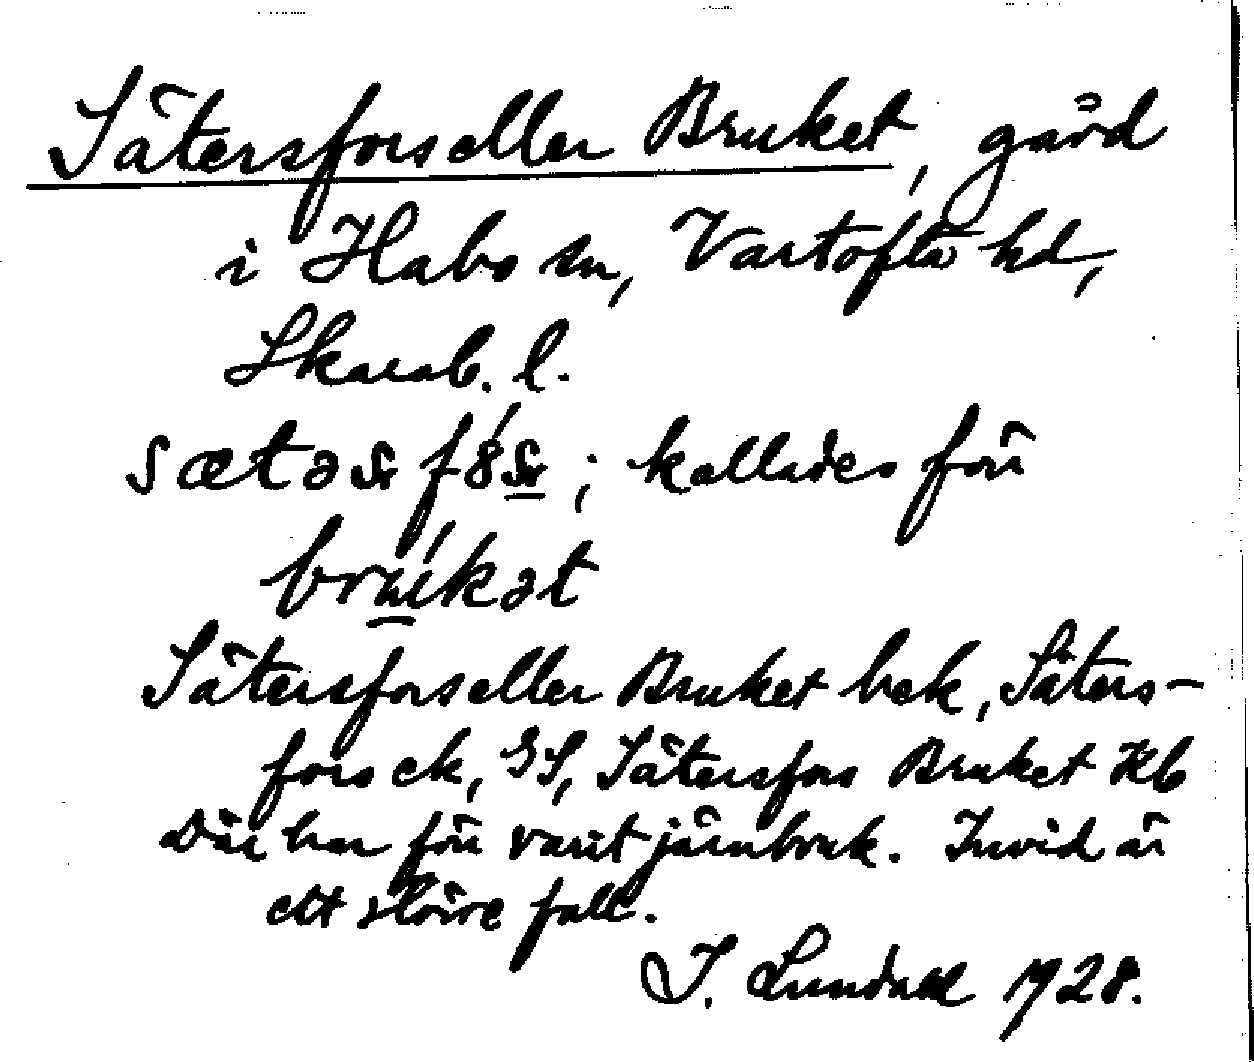 Sätersfors eller Bruket, gård
i Habo sn, Vartofta hd,
Skarab. l.
; kallades förr
Sätersfors eller Bruket bek, Säters-
fors ek, GS, Sätersfors Bruket Kb
Där har förr varit järnbruk. Invid är
ett större fall.
I. Lundahl 1928.